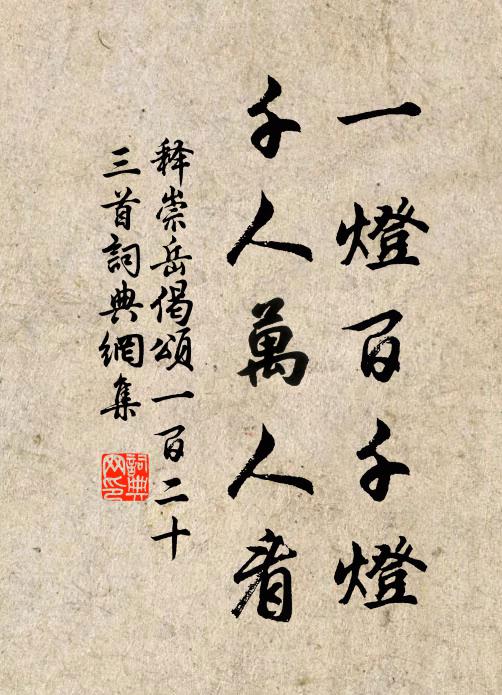 一燈百千燈
千人萬人看
释崇岳偈頌一百二十
三首詞典網集
詞典
网印